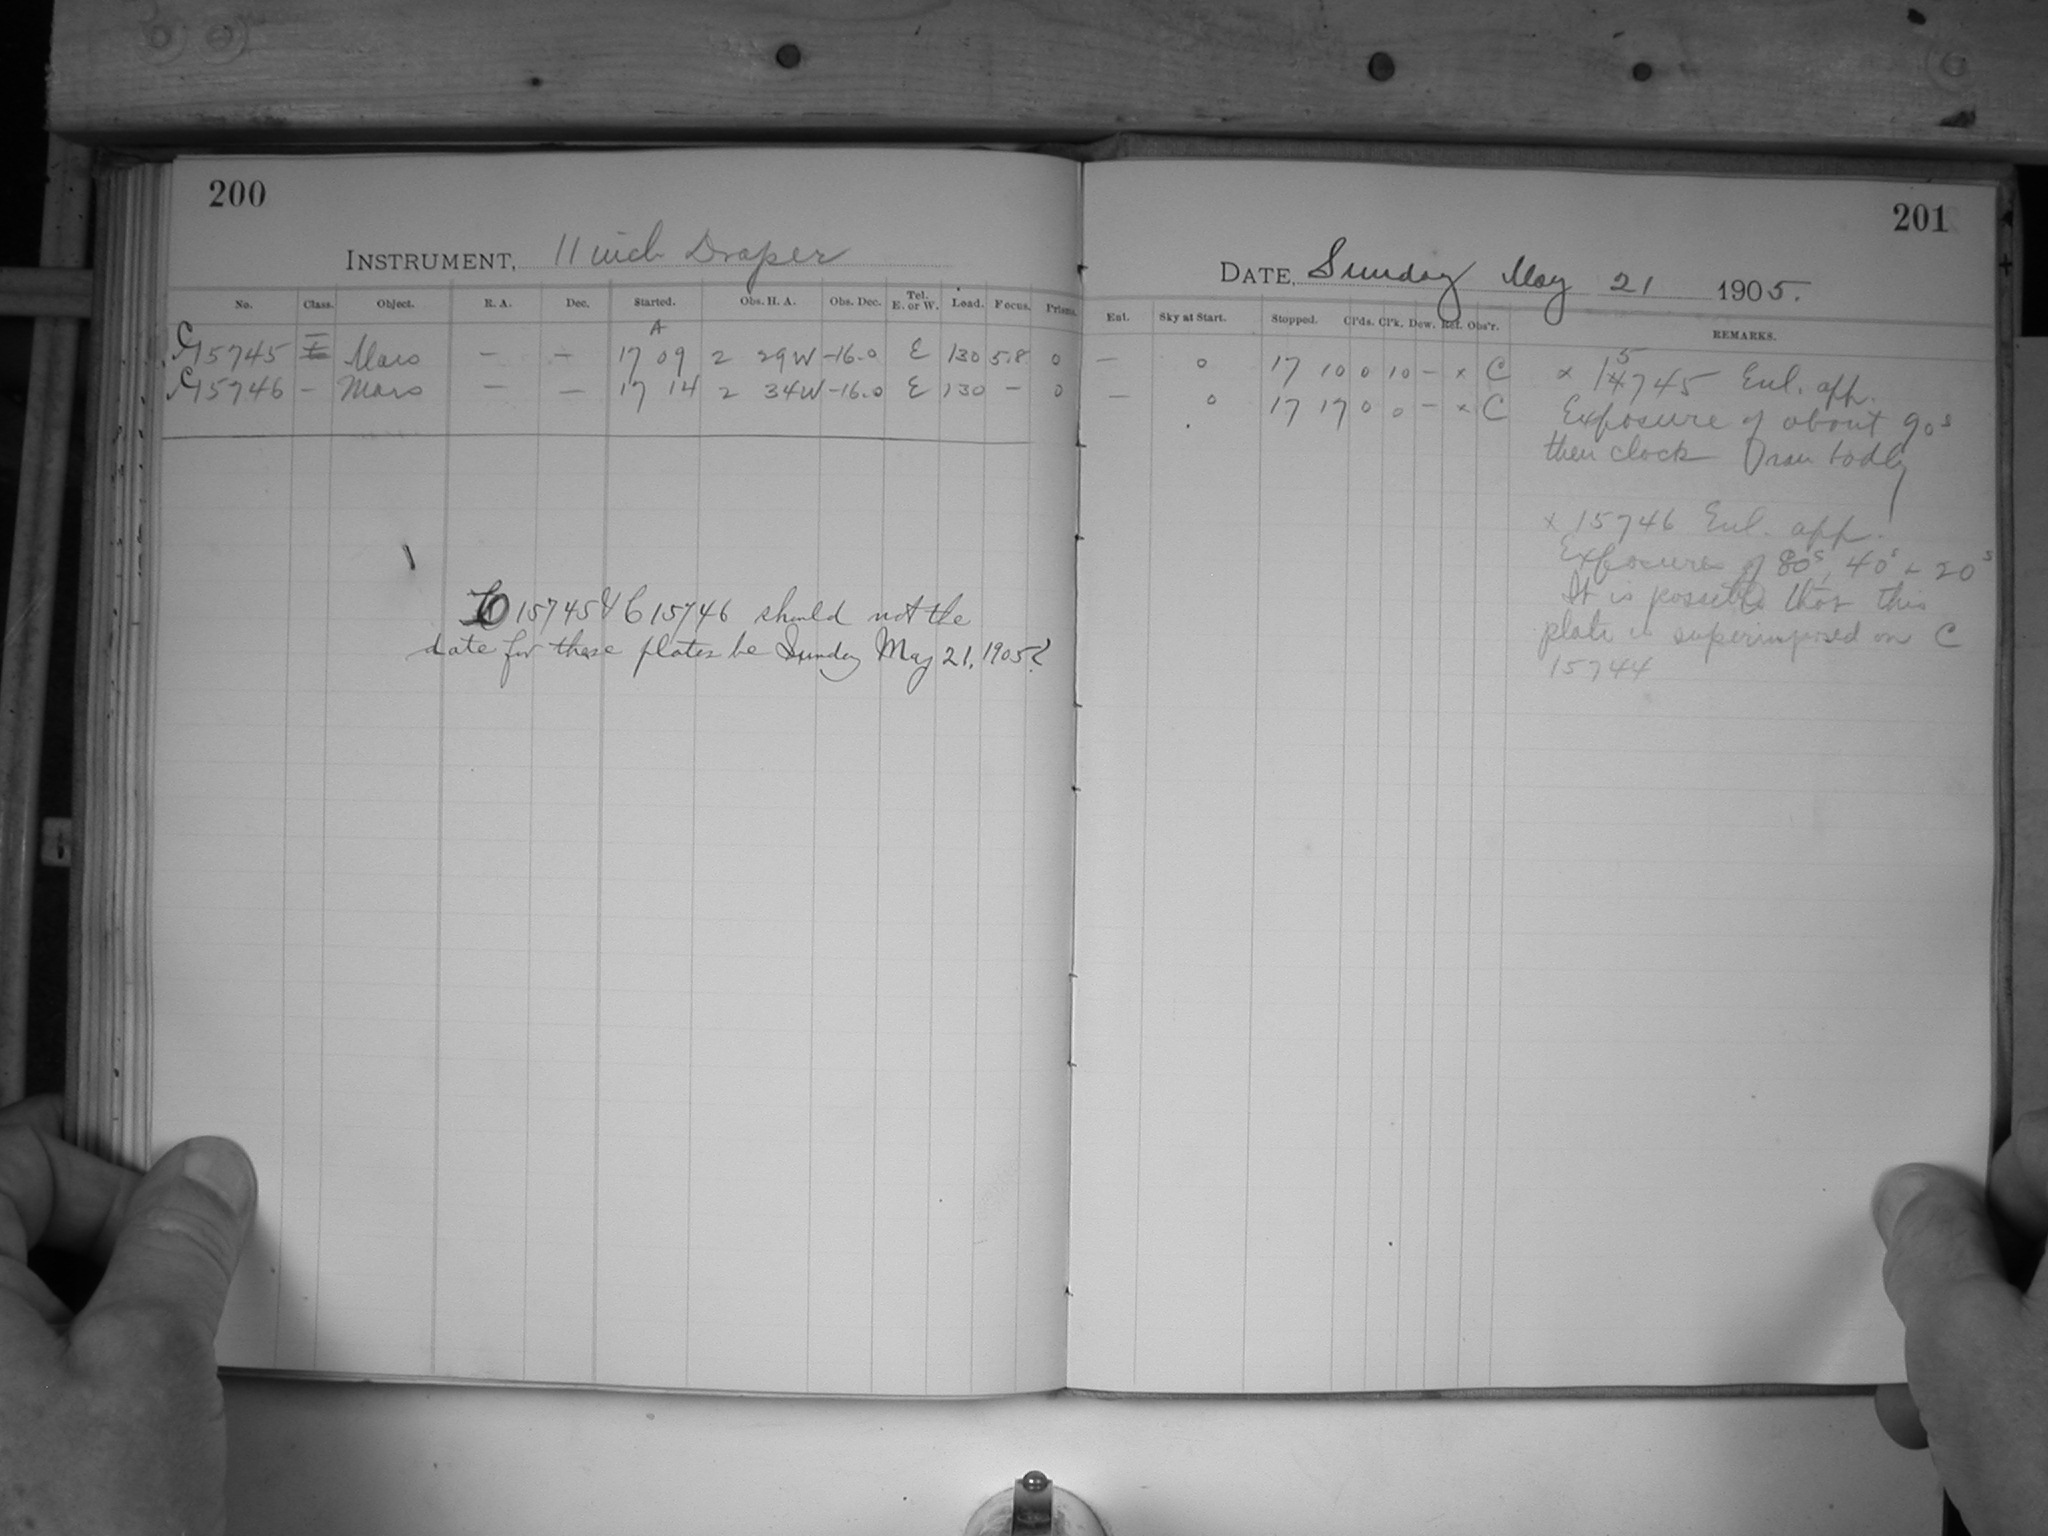 200
INSTRUMENT, 11 inch Draper
No. Class. Object. R. A. Dec. Started. Obs. H. A. Obs. Dec. Tel. E. or W. Load. Focus. Prisms.
A
C 15745 I Mars — — 17 09 2 29W -16.0 E 130 5.8 0
C 15746 — Mars — — 17 14 2 34W -16.0 E 130 — 0
C 15745 & C 15746 should not the
date for these plates be Sunday May 21, 1905?
201
DATE, Sunday May 21 1905.
Ent. Sky at Start. Stopped. Cl'ds. Cl'k. Dew. Ref. Obs'r. REMARKS.
— 0 17 10 0 10 — x C x 15745 Enl. app.
— 0 17 17 0 0 — x C Exposure of about 90s
then clock ran badly
x 15746 Enl. app.
Exposures of 80s, 40s & 20s
It is possible that this
plate is superimposed on C
15744